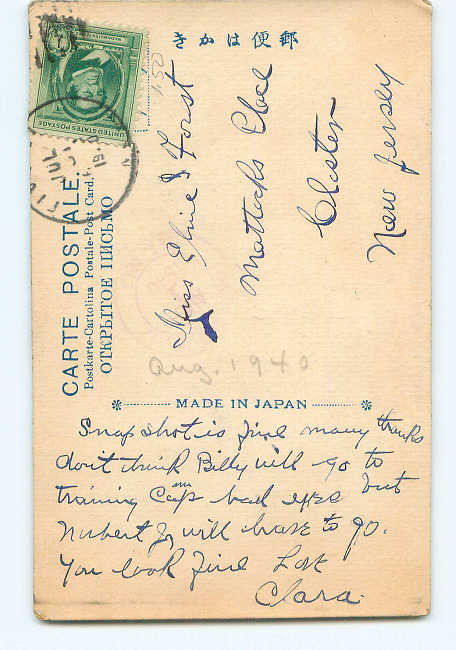 きかは便郵
CARTE POSTALE.
Postkarte-Cartolina Postale-Post Card.
ОТКРЫТОЕ ПИСЬМО
UNITED STATES POSTAGE
JUL
19
1.50
Miss Elsie I Forst
Mattocks Place
Closter
New Jersey
Aug. 1940
MADE IN JAPAN
Snap shot is fine many thanks
don't think Billy will go to
training Camp bad eyes but
Norbert Jy will have to go.
You look fine Love
Clara.